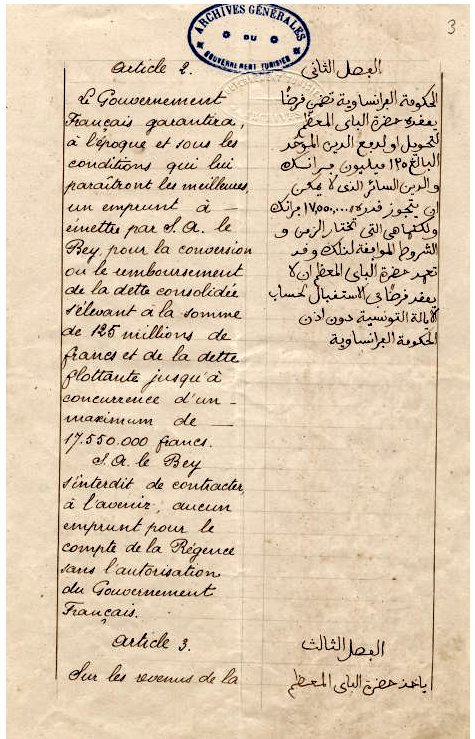 3
ARCHIVES GÉNÉRALES
DU
GOUVERNEMENT TUNISIEN
Article 2.
Le Gouvernement
Français garantira,
à l'époque et sous les
conditions qui lui
paraîtront les meilleures,
un emprunt à
émettre par S. A. le
Bey, pour la conversion
ou le remboursement
de la dette consolidée
s'élevant à la somme
de 125 millions de
francs et de la dette
flottante jusqu'à
concurrence d'un
maximum de
17.550.000 francs.
S. A. le Bey
s'interdit de contracter,
à l'avenir, aucun
emprunt pour le
compte de la Régence
sans l'autorisation
du Gouvernement
Français.
Article 3.
Sur les revenus de la
الفصل الثانى
الحكومة الفرانساوية تضمن قرضا
يعقده حضرة الباى المعظم
لتحويل او لدفع الدين الموحد
البالغ ١٢٥ مليون فرانك
والدين السائر الذى لا يمكن
ان يتجوز قدره ١٧٥٥٠٠٠٠ فرانك
ولكنها هى التى تختار الزمن و
الشروط الموافقة لذلك وقد
تعهد حضرة الباى المعظم ان لا
يعقد قرضا فى الاستقبال لحساب
الايالة التونسية دون اذن
الحكومة الفرانساوية
الفصل الثالث
ياخذ حضرة الباى المعظم